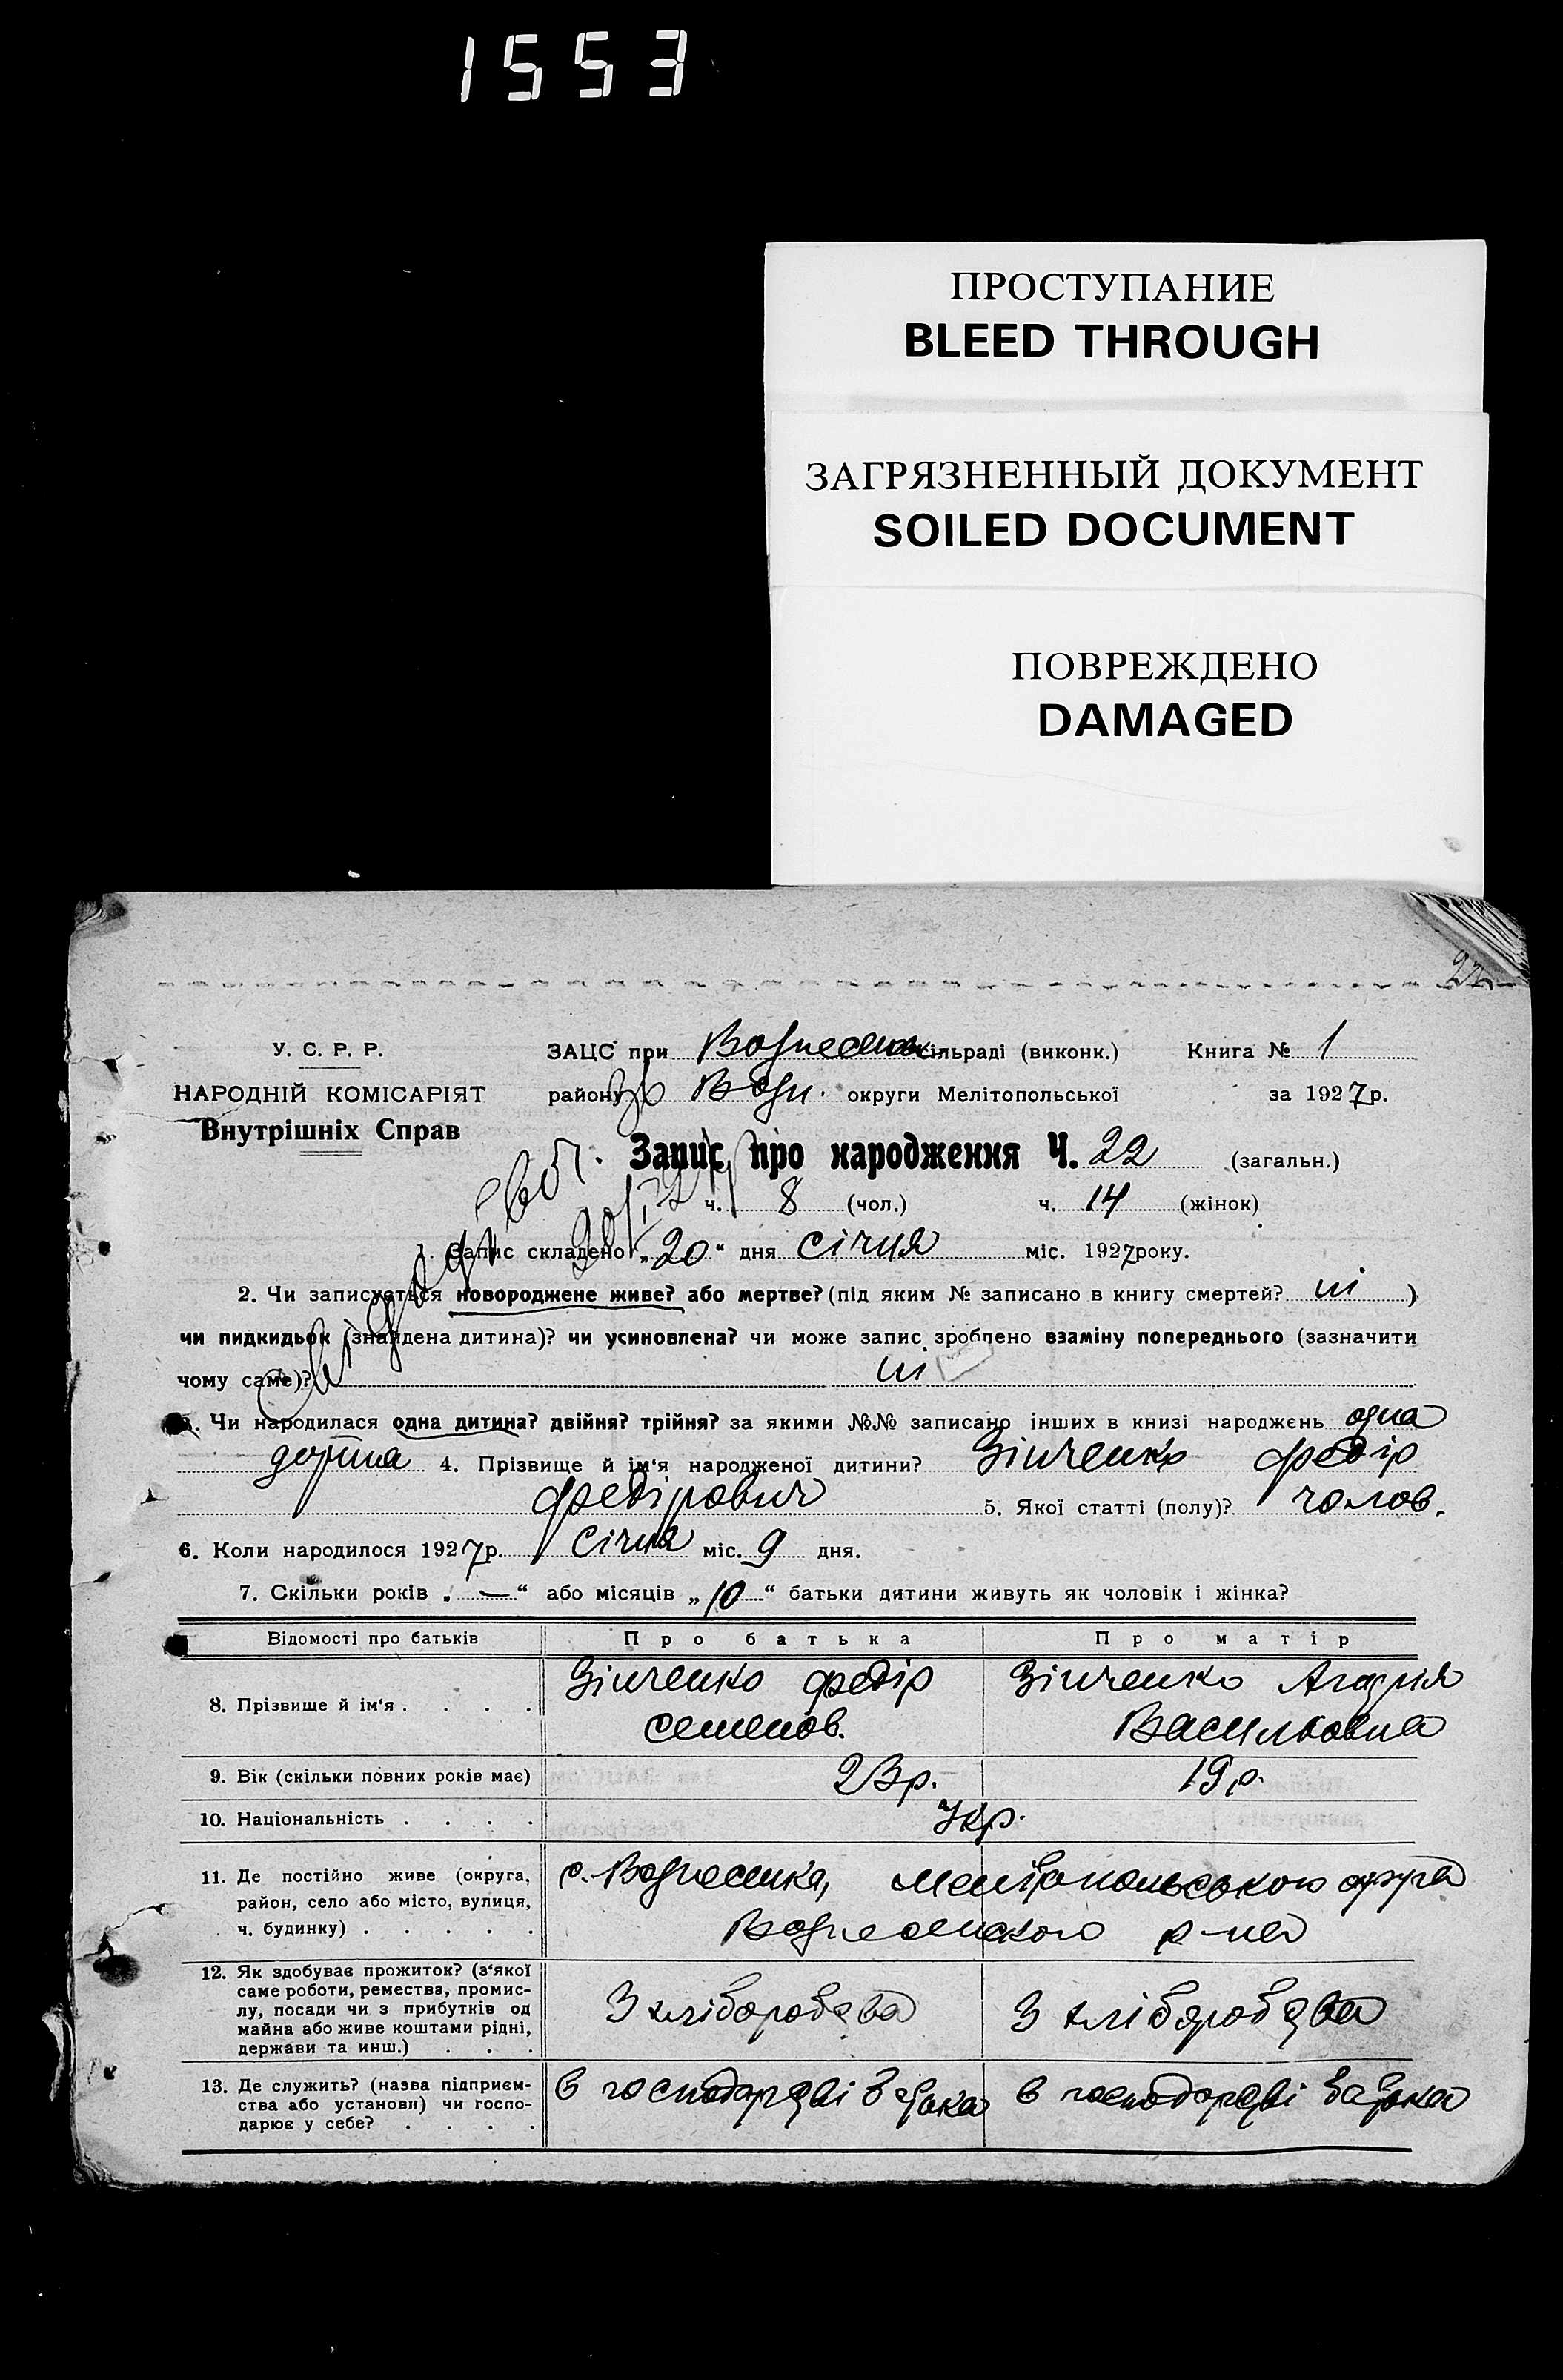 1553
ПРОСТУПАНИЕ
BLEED THROUGH
ЗАГРЯЗНЕННЫЙ ДОКУМЕНТ
SOILED DOCUMENT
ПОВРЕЖДЕНО
DAMAGED
22
У. С. Р. Р.
НАРОДНІЙ КОМІСАРІЯТ
Внутрішніх Справ
ЗАЦС при Вознесенск сільраді (виконк.) Книга № 1
району Возн. округи Мелітопольської за 1927 р.
Запис про народження Ч. 22 (загальн.)
ч. 8 (чол.) ч. 14 (жінок)
Свідоцтво
20/I 27
1. Запис складено „20“ дня січня міс. 1927 року.
2. Чи записується новороджене живе? або мертве? (під яким № записано в книгу смертей? ні )
чи пидкидьок (знайдена дитина)? чи усиновлена? чи може запис зроблено взаміну попереднього (зазначити
чому саме)? ні
3. Чи народилася одна дитина? двійня? трійня? за якими №№ записано інших в книзі народжень одна
дотина 4. Прізвище й ім'я народженої дитини? Зінченко Федір
Федірович 5. Якої статті (полу)? чолов.
6. Коли народилося 1927 р. Січня міс. 9 дня.
7. Скільки років „—“ або місяців „10“ батьки дитини живуть як чоловік і жінка?
Відомості про батьків Про батька Про матір
8. Прізвище й ім'я . . . . . Зінченко Федір Зінченко
Семенов. Васильовна
9. Вік (скільки повних років має) 23р. 19р.
10. Національність . . . . . Укр.
11. Де постійно живе (округа,
район, село або місто, вулиця,
ч. будинку) . . . . .
с. Вознесенка, Мелітопольською округа
Вознесенского р-на
12. Як здобуває прожиток? (з'якої
саме роботи, ремества, промис-
лу, посади чи з прибутків од
майна або живе коштами рідні,
держави та инш.) . . .
З хліборобства З хліборобства
13. Де служить? (назва підприєм-
ства або установи) чи госпо-
дарює у себе? . . . .
в господарстві батька в господарстві батька